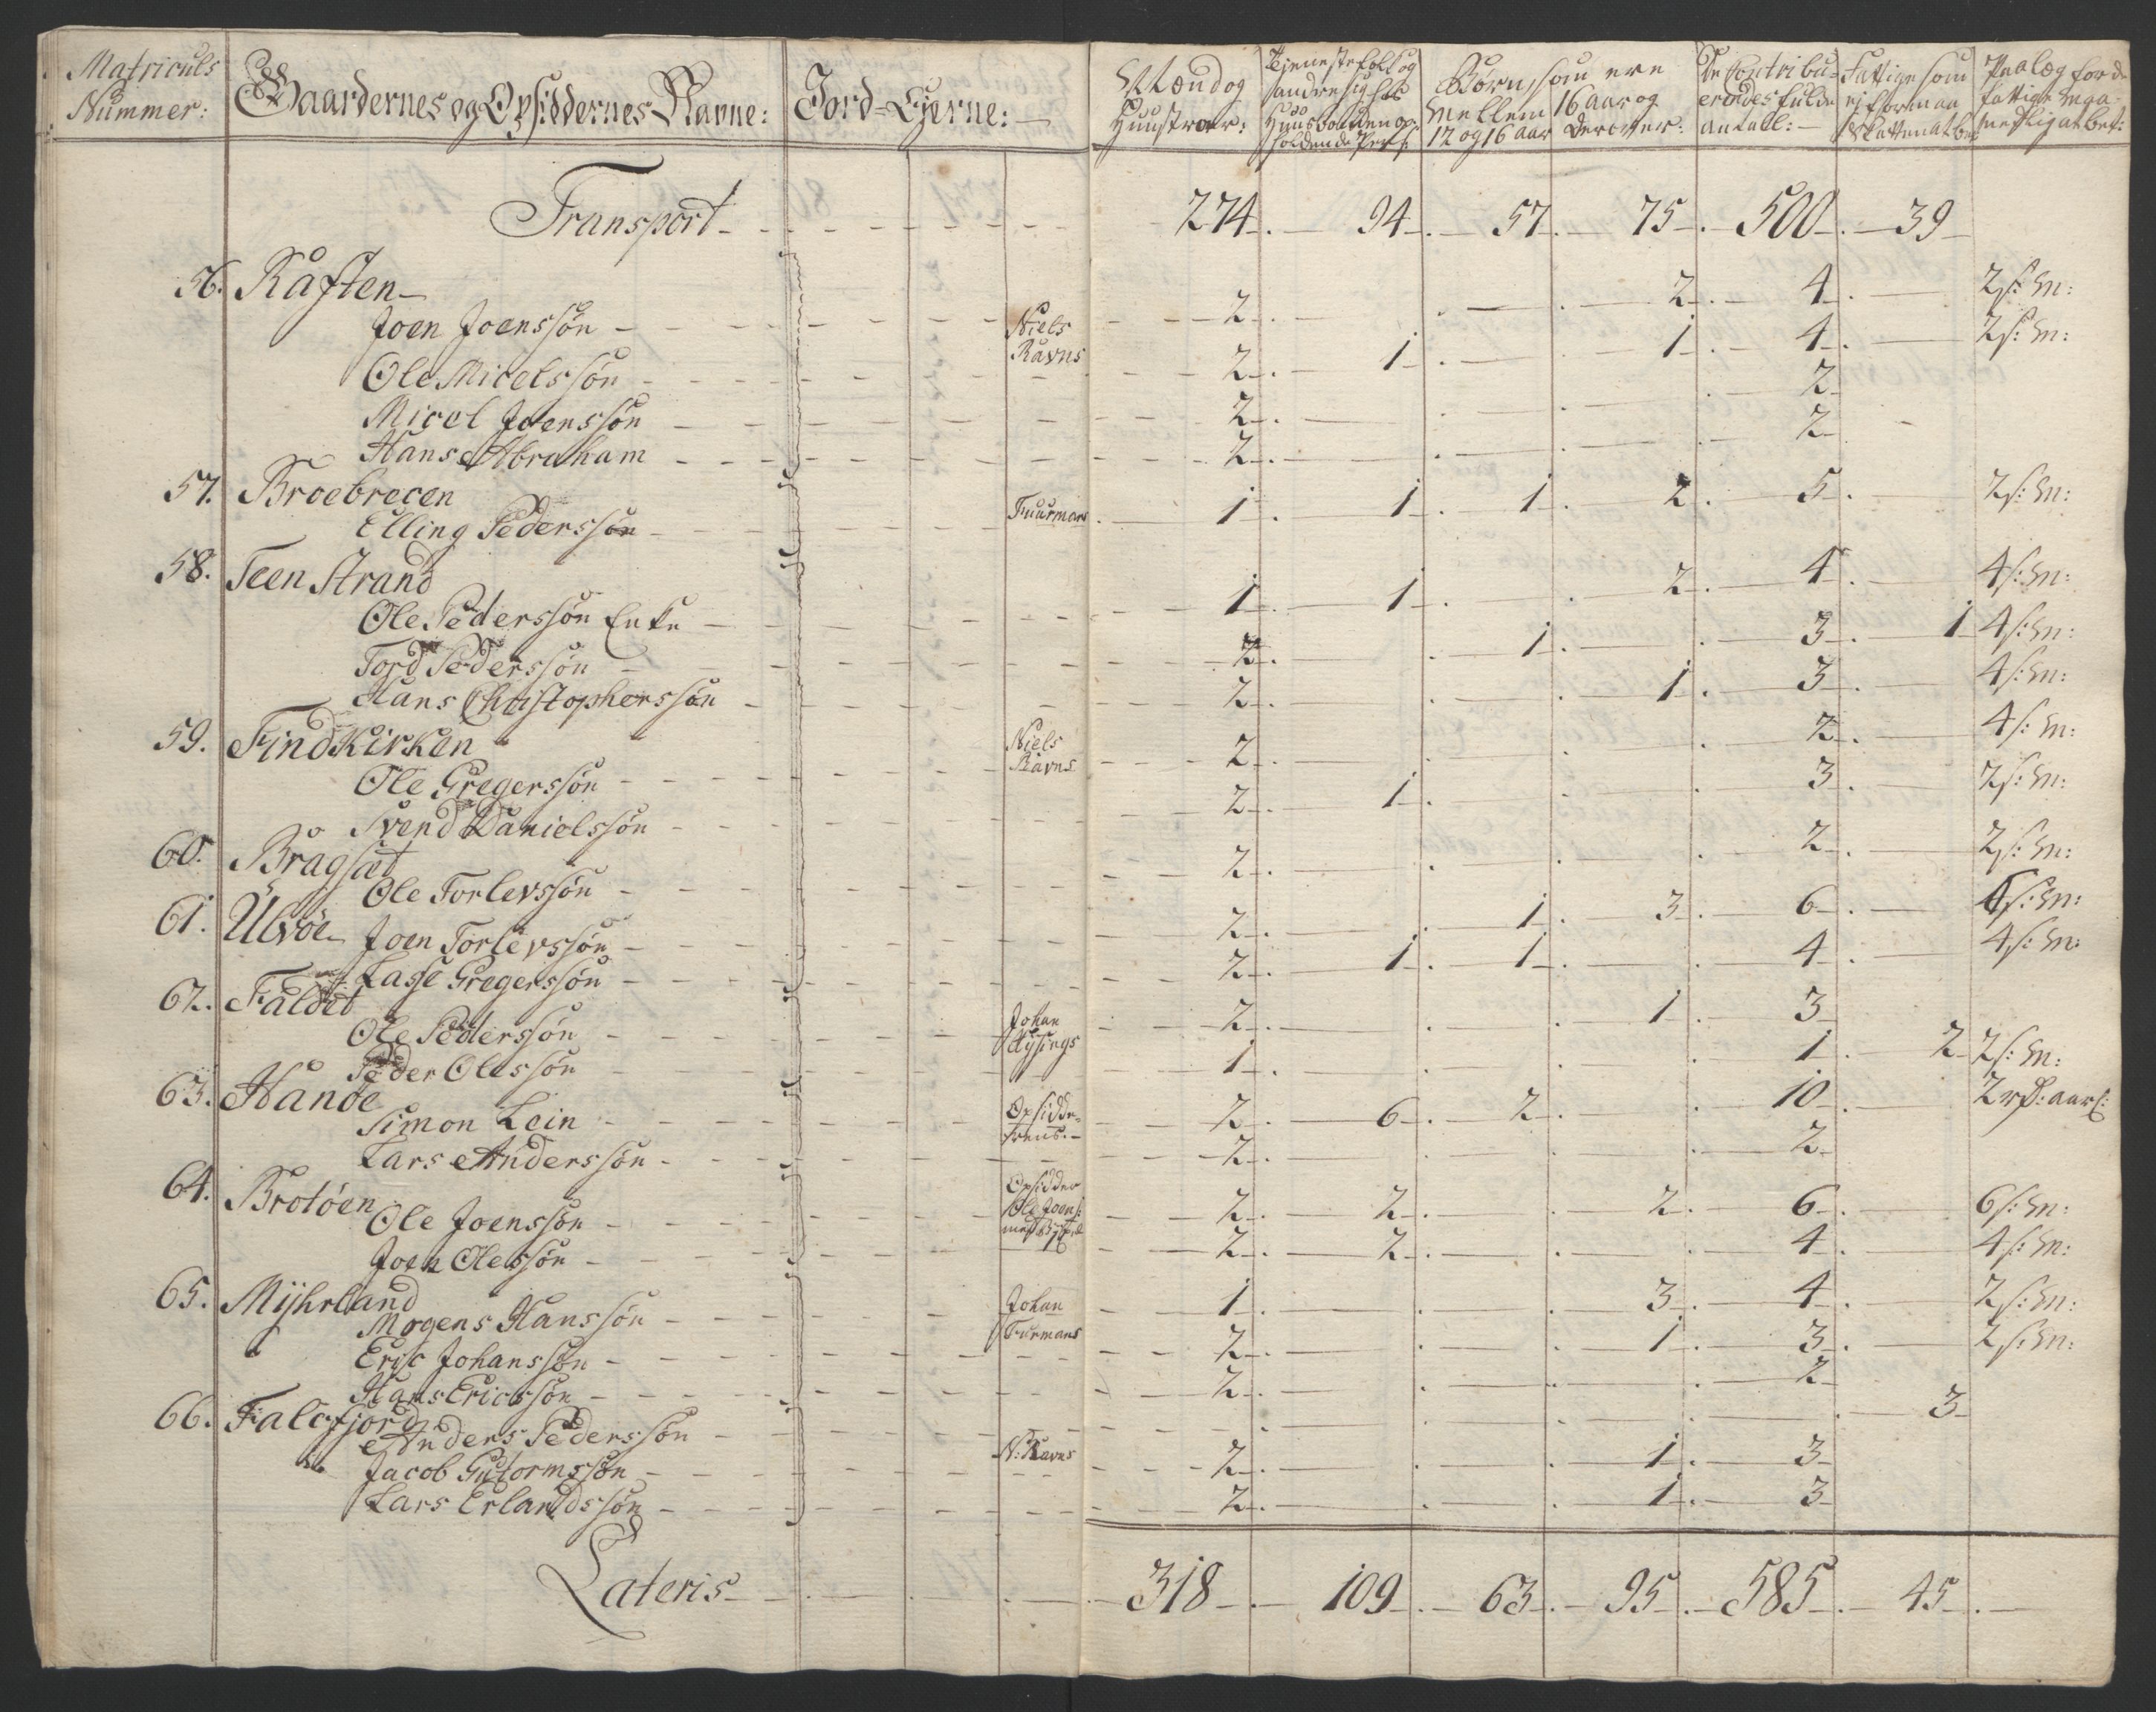 Matriculs Nummer: Gaardernes og Opsiddernes Navne: Jord-Ejerne: Mænd og Huustroer: Tienestefolk og andre sig hos Huusbonden op: holdende Pers: Børn som ere mellem 12 og 16 aar 16 aar og derover: De Contribuerendes fulde antall: Fattige som ej formaa Skatten at bet: Paalæg for de fattige maanetlig at bet:
Transport 274 94 57 75 500 39
56. Råften
Joen Joenssøn Niels Ravns 2 2 4 2 s: m:
Ole Micelssøn 2 1 1 4 2 s: m:
Micel Joenssøn 2 2
Hans Abraham 2 2
57. Broebrecen
Elling Pederssøn Fuurmans 1 1 1 2 5 2 s: m:
58. Teen Strand
Ole Pederssøn Enke 1 1 2 4 4 s: m:
Tord Pederssøn 2 1 3 1 4 s: m:
Hans Christopherssøn 2 1 3 4 s: m:
59. Findkirken
Ole Gregerssøn Niels Ravns 2 2 4 s: m:
Svend Danielssøn 2 1 3 2 s: m:
60. Bragsæt
Ole Torlevssøn 2 2 2 s: m:
61. Ulvöe Joen Torlevssøn 2 1 3 6 s: m:
Lasse Gregerssøn 2 1 1 4 4 s: m:
62. Faldet
Ole Pederssøn Johan Hysings 2 1 3
Peder Olessøn 1 1 2 2 s: m:
63. Hanöe
Simon Lein Opsidderens. 2 6 2 10 2 rd: aarl:
Lars Anderssøn 2 2
64. Brotöen
Ole Joenssøn Opsidder Ole Joens: 2 2 2 6 6 s: m:
Joen Olessøn 2 2 4 4 s: m:
65. Mijhrland
Mogens Hanssøn Johan Furmans 1 3 4 2 s: m:
Eric Johanssøn 2 1 3 2 s: m:
Hans Ericssøn 2 2
66. Falcfjord
Anders Pederssøn 3
Jacob Gutormssøn N: Ravns 2 1 3
Lars Erlandssøn 2 1 3
Lateris 318 109 63 95 585 45